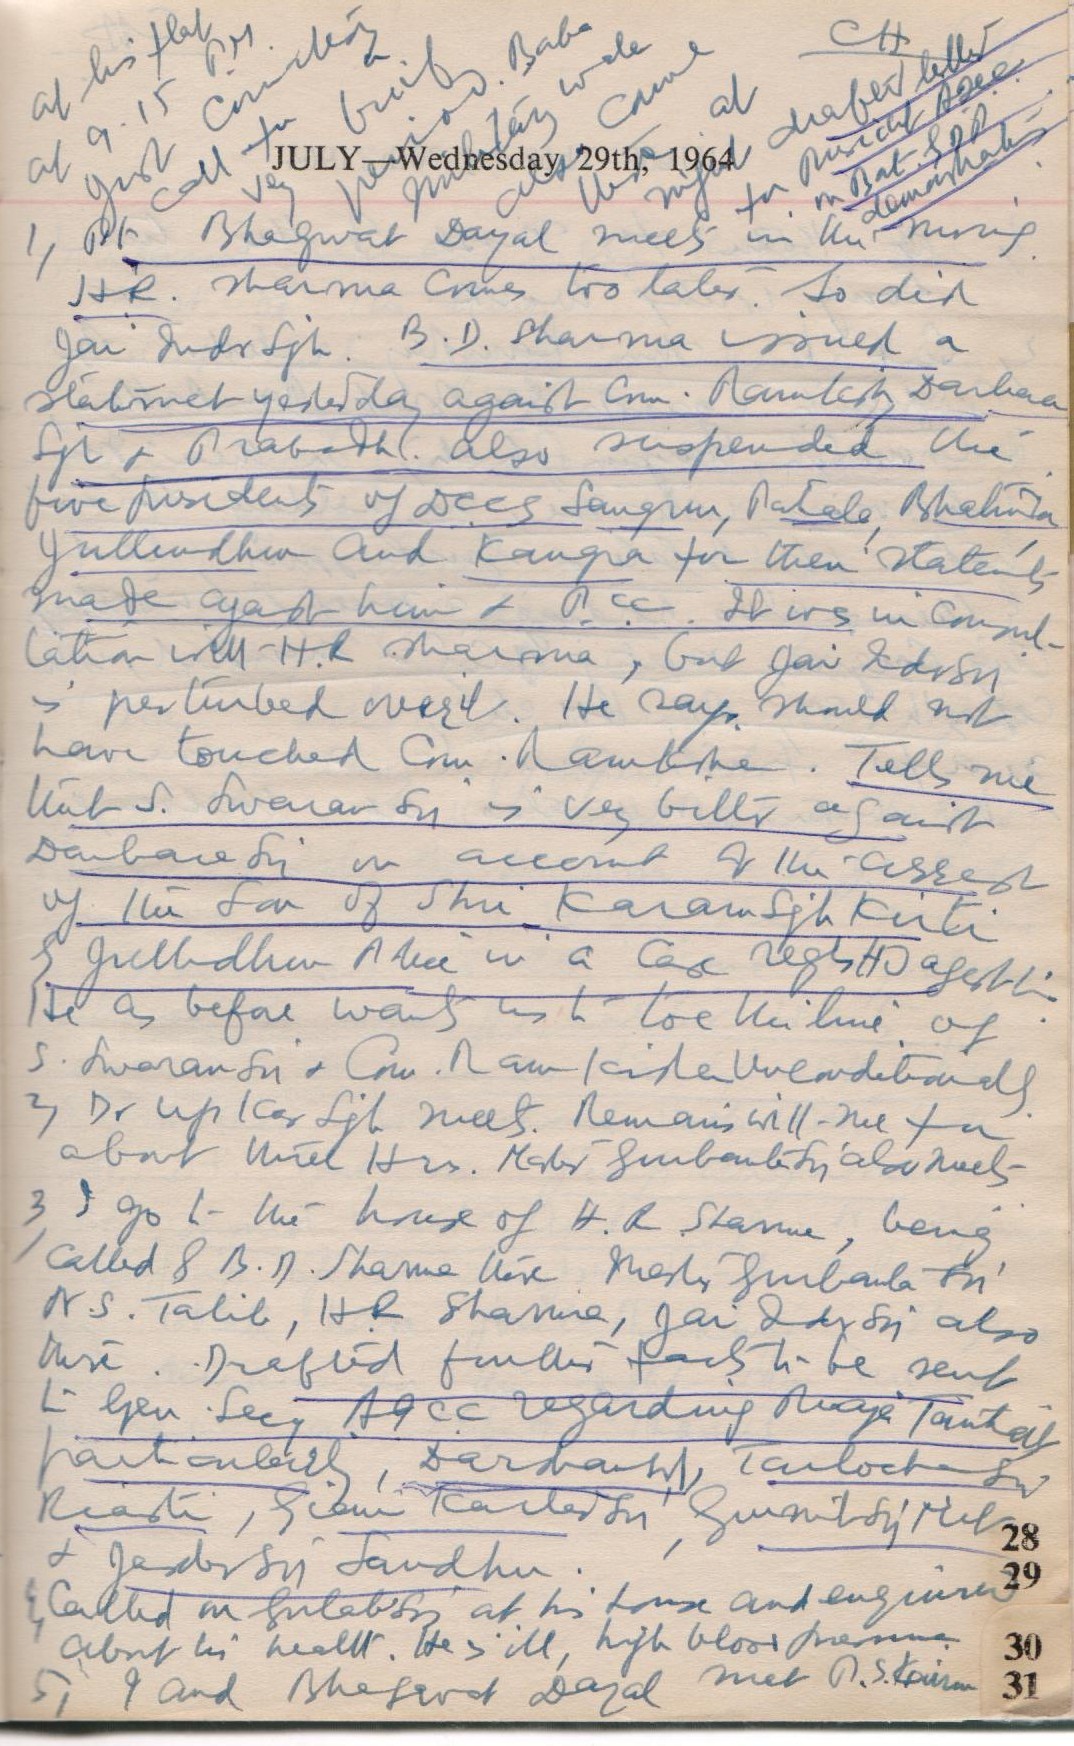 CH
drafted letter
for President AICC
on Bat. SDP
demonstration
JULY—Wednesday 29th, 1964
1, Pt Bhagwat Dayal meets in the morning.
H.R. Sharma comes too later. So did
Jai Indr Sgh. B.D. Sharma issued a
statemet yesterday against Com. Ramkishn Darbara
Sgh & Prabodh. also suspended the
five presidents of DCCs Sangrur, Patiala, Bhatinda
Jullundhur and Kangra for their statemts
made against him & P.C.C. It was in consul-
tation with H.R Sharma, but Jai Indr Sg
is perturbed over it. He says should not
have touched Com. Ramkishen. Tells me
that S. Swaran Sg is very bitter against
Darbara Sg on account of the arrest
of the Son of Shri Karam Sgh Kirti
by Jullundhur Police in a Case regstd agst him.
He as before wants us to toe the line of
S. Swaran Sg & Com. Ram Kishen Unconditionally.
2, Dr Upkar Sgh meets. Remains with me for
about three Hrs. Master Gurbanta Sg also meets
3, I go to the house of H.R Sharma, being
called by B.D. Sharma there Master Gurbanta Sg
N.S. Talib, H.R Sharma, Jai Indr Sg also
there. Drafted further facts to be sent
to Gen. Secy AICC regarding Praja Tantar
particularly, Darshan Sg, Tarlochan Sg
Riasti, Giani Kartar Sg, Gurmit Sg Mit
& Jasdev Sg Sandhu.
4, Called on Gulab Sg at his house and enquired
about his health. He is ill, high blood pressure
5, I and Bhagwat Dayal met P.S. Kairon
at his flat
at 9.15 P.M.
just courtesy
call for
very brief
period. Baba
also came
there at
night
28
29
30
31